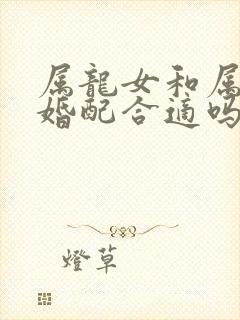 属龍女和属
婚配合適吗
燈草